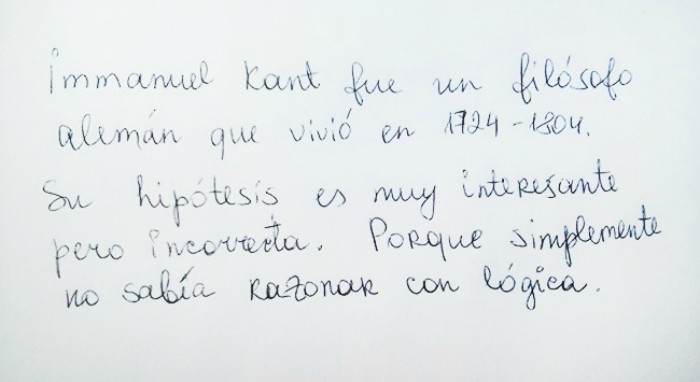 Immanuel Kant fue un filósofo
alemán que vivió en 1724-1804.
Su hipótesis es muy interesante
pero incorrecta. Porque simplemente
no sabía razonar con lógica.